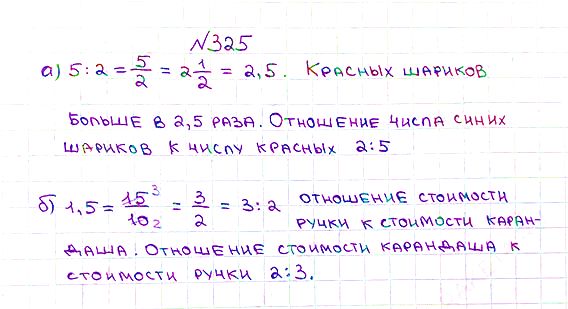 №325
а) 5 : 2 = 5/2 = 2 1/2 = 2,5. Красных шариков
больше в 2,5 раза. Отношение числа синих
шариков к числу красных 2:5
б) 1,5 = 15 3/10 2 = 3/2 = 3:2 отношение стоимости
ручки к стоимости каран-
даша. Отношение стоимости карандаша к
стоимости ручки 2:3.